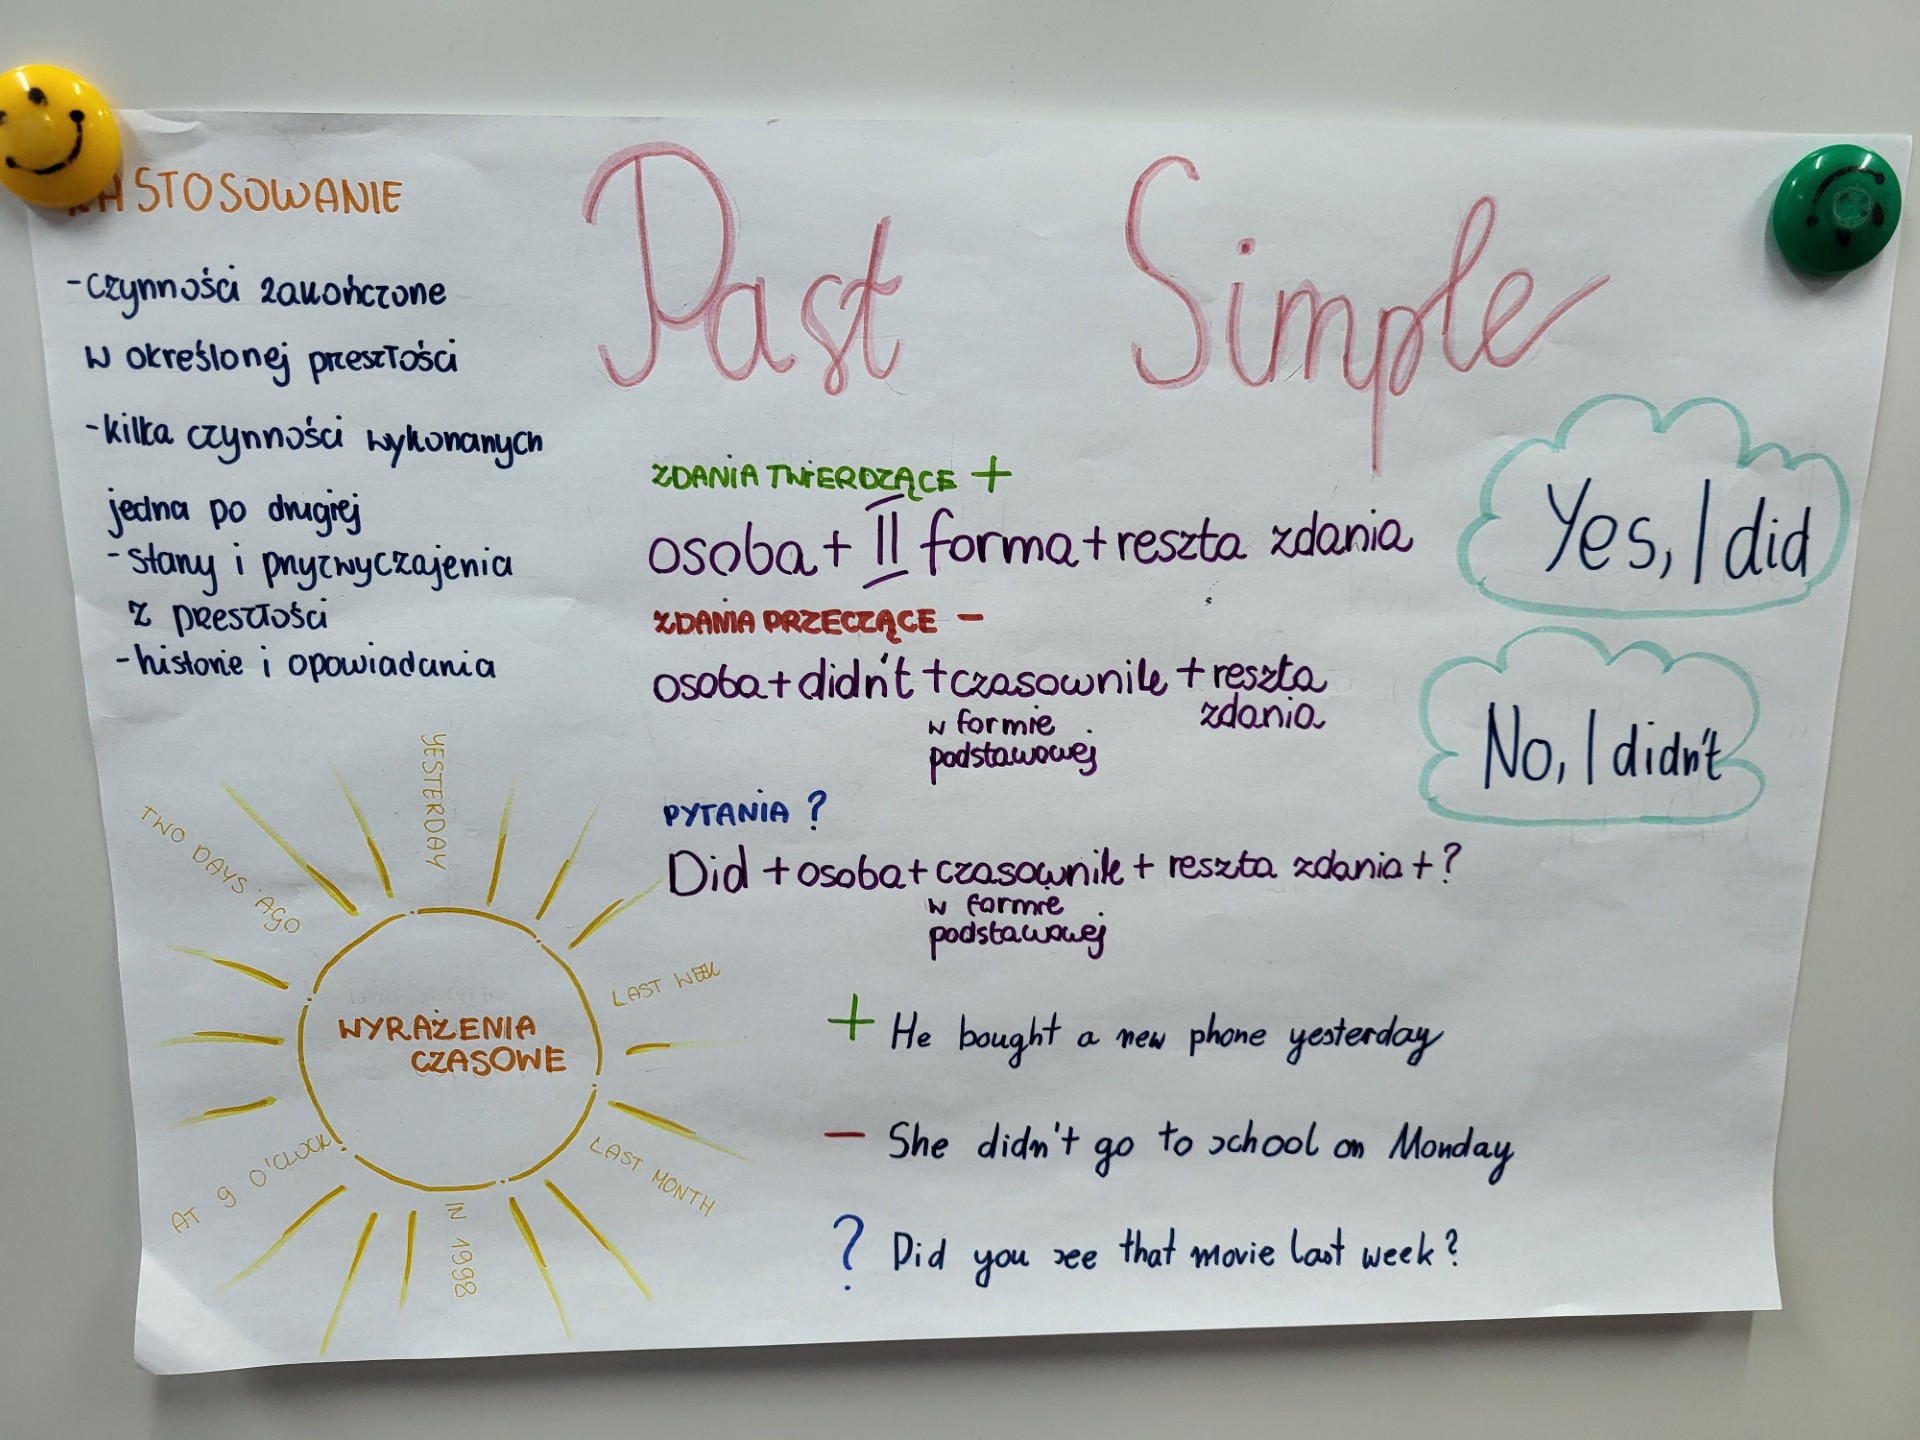 ZASTOSOWANIE
-czynności zakończone
w określonej preszłości
-kilka czynności wykonanych
jedna po drugiej
-stany i pnyzwyczajenia
z preszłości
-historie i opowiadania
Past Simple
ZDANIA TWIERDZĄCE +
osoba + II forma + reszta zdania
ZDANIA PRZECZĄCE -
osoba + didn't + czasownik + reszta
zdania
w formie
podstawowej
PYTANIA ?
Did + osoba + czasownik + reszta zdania + ?
w formie
podstawowej
Yes, I did
No, I didn't
+ He bought a new phone yesterday
- She didn't go to school on Monday
? Did you see that movie last week?
WYRAŻENIA
CZASOWE
YESTERDAY
TWO DAYS AGO
LAST WEEK
LAST MONTH
IN 1998
AT 9 O'CLOCK